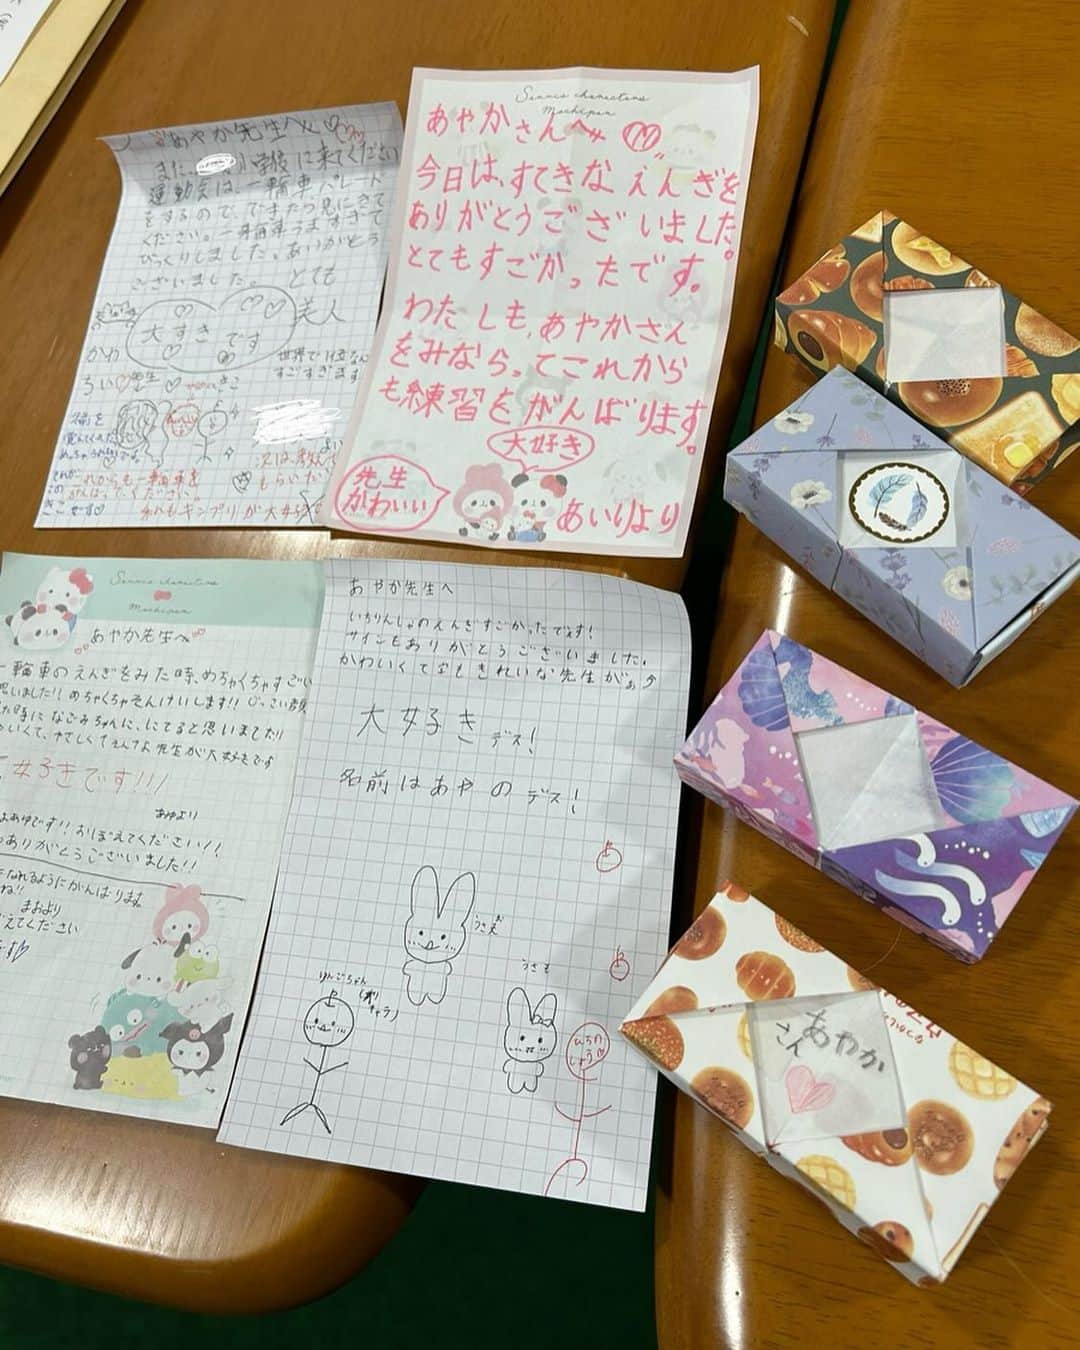 あやか先生へ
また、小学校に来てください
運動会は、一輪車パレード
をするので、できたら見にきて
ください。一輪車うますぎて
びっくりしました。ありがとう
ございました。
とても
美人
大すきです
かわ
ちい
先生
世界で1位なん
すごすぎます
次は教えて
もらいたい
これからも一輪車を
がんばってください。
私もキンプリが大好き
Sanrio characters
Mochipan
あやかさんへ
今日は、すてきなえんぎを
ありがとうございました。
とてもすごかったです。
わたしも、あやかさん
をみならってこれから
も練習をがんばります。
大好き
先生
かわいい
あいりより
Sanrio characters
Mochipan
あやか先生へ
一輪車のえんぎをみた時、めちゃくちゃすごい
思いました!!めちゃくちゃそんけいします!!
た時になごみちゃんに、にてると思いました!!
いくて、やさしくてすんな先生が大好きです
大好きです!!!
あゆより
あゆです!!おぼえてください!!
ありがとうございました!!
なれるようにがんばります。
ね!!
まおより
えてください
あやか先生へ
いちりんしゃのえんぎすごかったです!
サインもありがとうございました。
かわいくてとてもきれいな先生が
大好きデス!
名前はあやのデス!
うさえ
りんごちゃん
うさも
あやか
さん